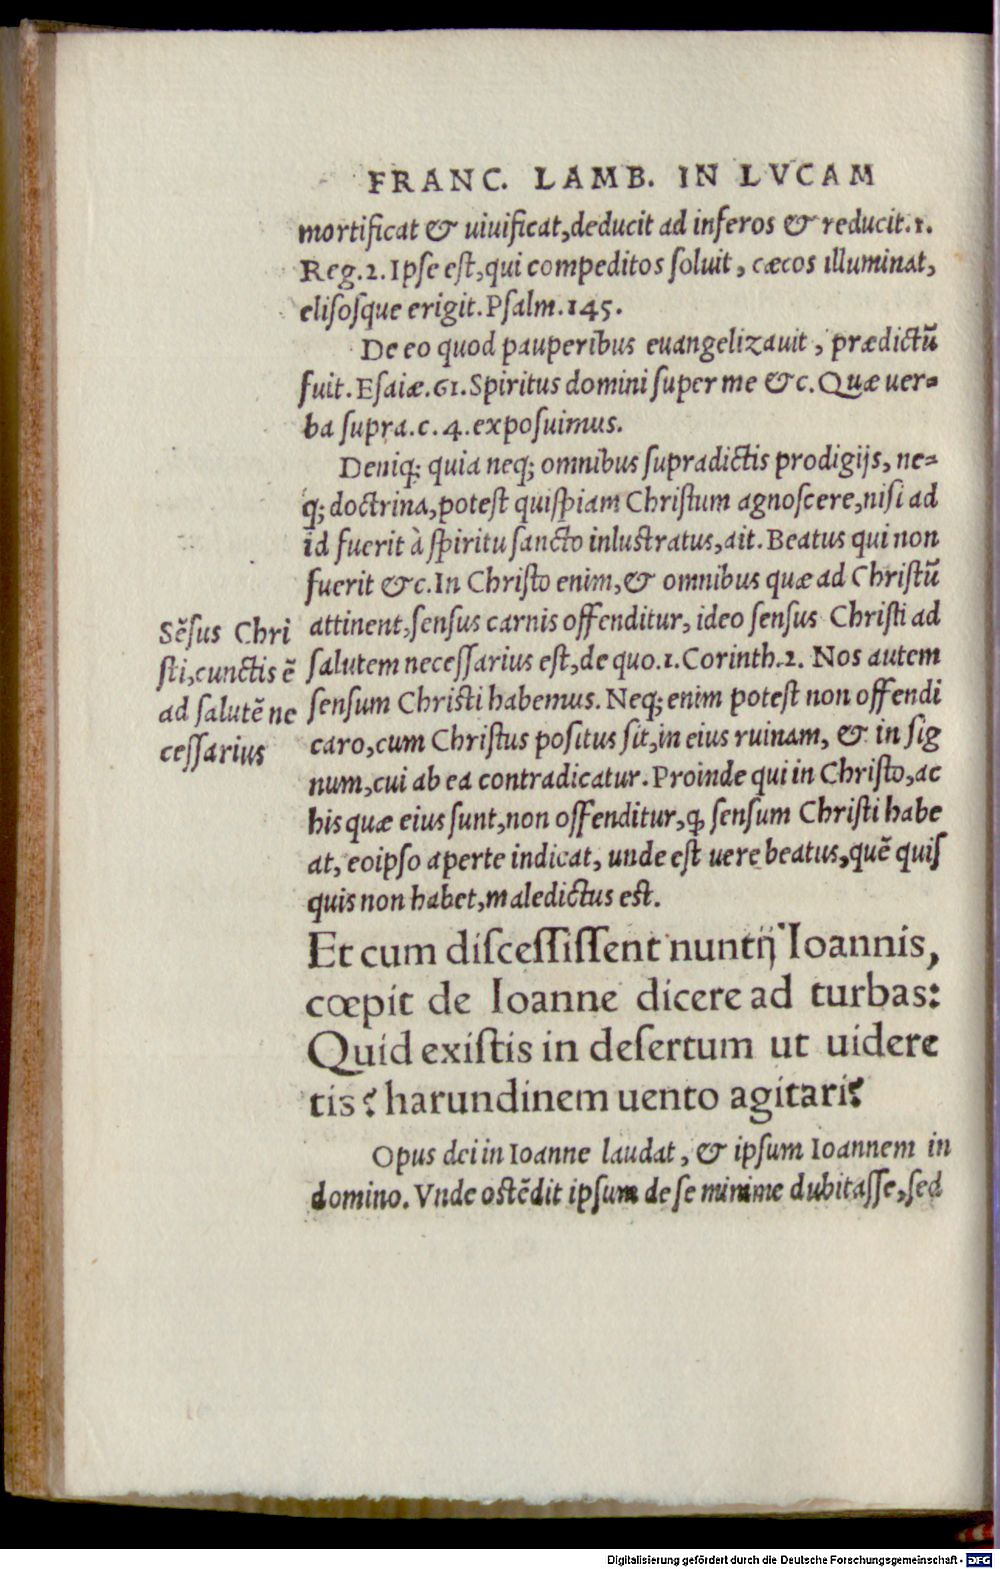 FRANC. LAMB. IN LVCAM
mortificat & uiuificat, deducit ad inferos & reducit. 1.
Reg. 2. Ipse est, qui compeditos soluit, cæcos illuminat,
elisosque erigit. Psalm. 145.
De eo quod pauperibus euangelizauit, prædictũ
fuit. Esaiæ. 61. Spiritus domini super me &c. Quæ uer-
ba supra. c. 4. exposuimus.
Deniq; quia neq; omnibus supradictis prodigijs, ne-
q; doctrina, potest quispiam Christum agnoscere, nisi ad
id fuerit à spiritu sancto inlustratus, ait. Beatus qui non
fuerit &c. In Christo enim, & omnibus quæ ad Christũ
attinent, sensus carnis offenditur, ideo sensus Christi ad
salutem necessarius est, de quo. 1. Corinth. 2. Nos autem
sensum Christi habemus. Neq; enim potest non offendi
caro, cum Christus positus sit, in eius ruinam, & in sig
num, cui ab ea contradicatur. Proinde qui in Christo, ac
his quæ eius sunt, non offenditur, ꝙ sensum Christi habe
at, eoipso aperte indicat, unde est uere beatus, quẽ quis
quis non habet, maledictus est.
Sẽsus Chri
sti, cunctis ẽ
ad salutẽ ne
cessarius
Et cum discessissent nuntij Ioannis,
cœpit de Ioanne dicere ad turbas:
Quid existis in desertum ut uidere
tis? harundinem uento agitari?
Opus dei in Ioanne laudat, & ipsum Ioannem in
domino. Vnde ostẽdit ipsum de se minime dubitasse, sed
Digitalisierung gefördert durch die Deutsche Forschungsgemeinschaft - DFG